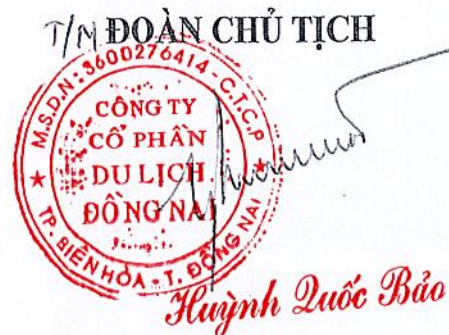 T/M ĐOÀN CHỦ TỊCH
M.S.D.N: 3600276414 - C.T.C.P
CÔNG TY
CỔ PHẦN
DU LỊCH
ĐỒNG NAI
TP. BIÊN HÒA - T. ĐỒNG NAI
Huỳnh Quốc Bảo